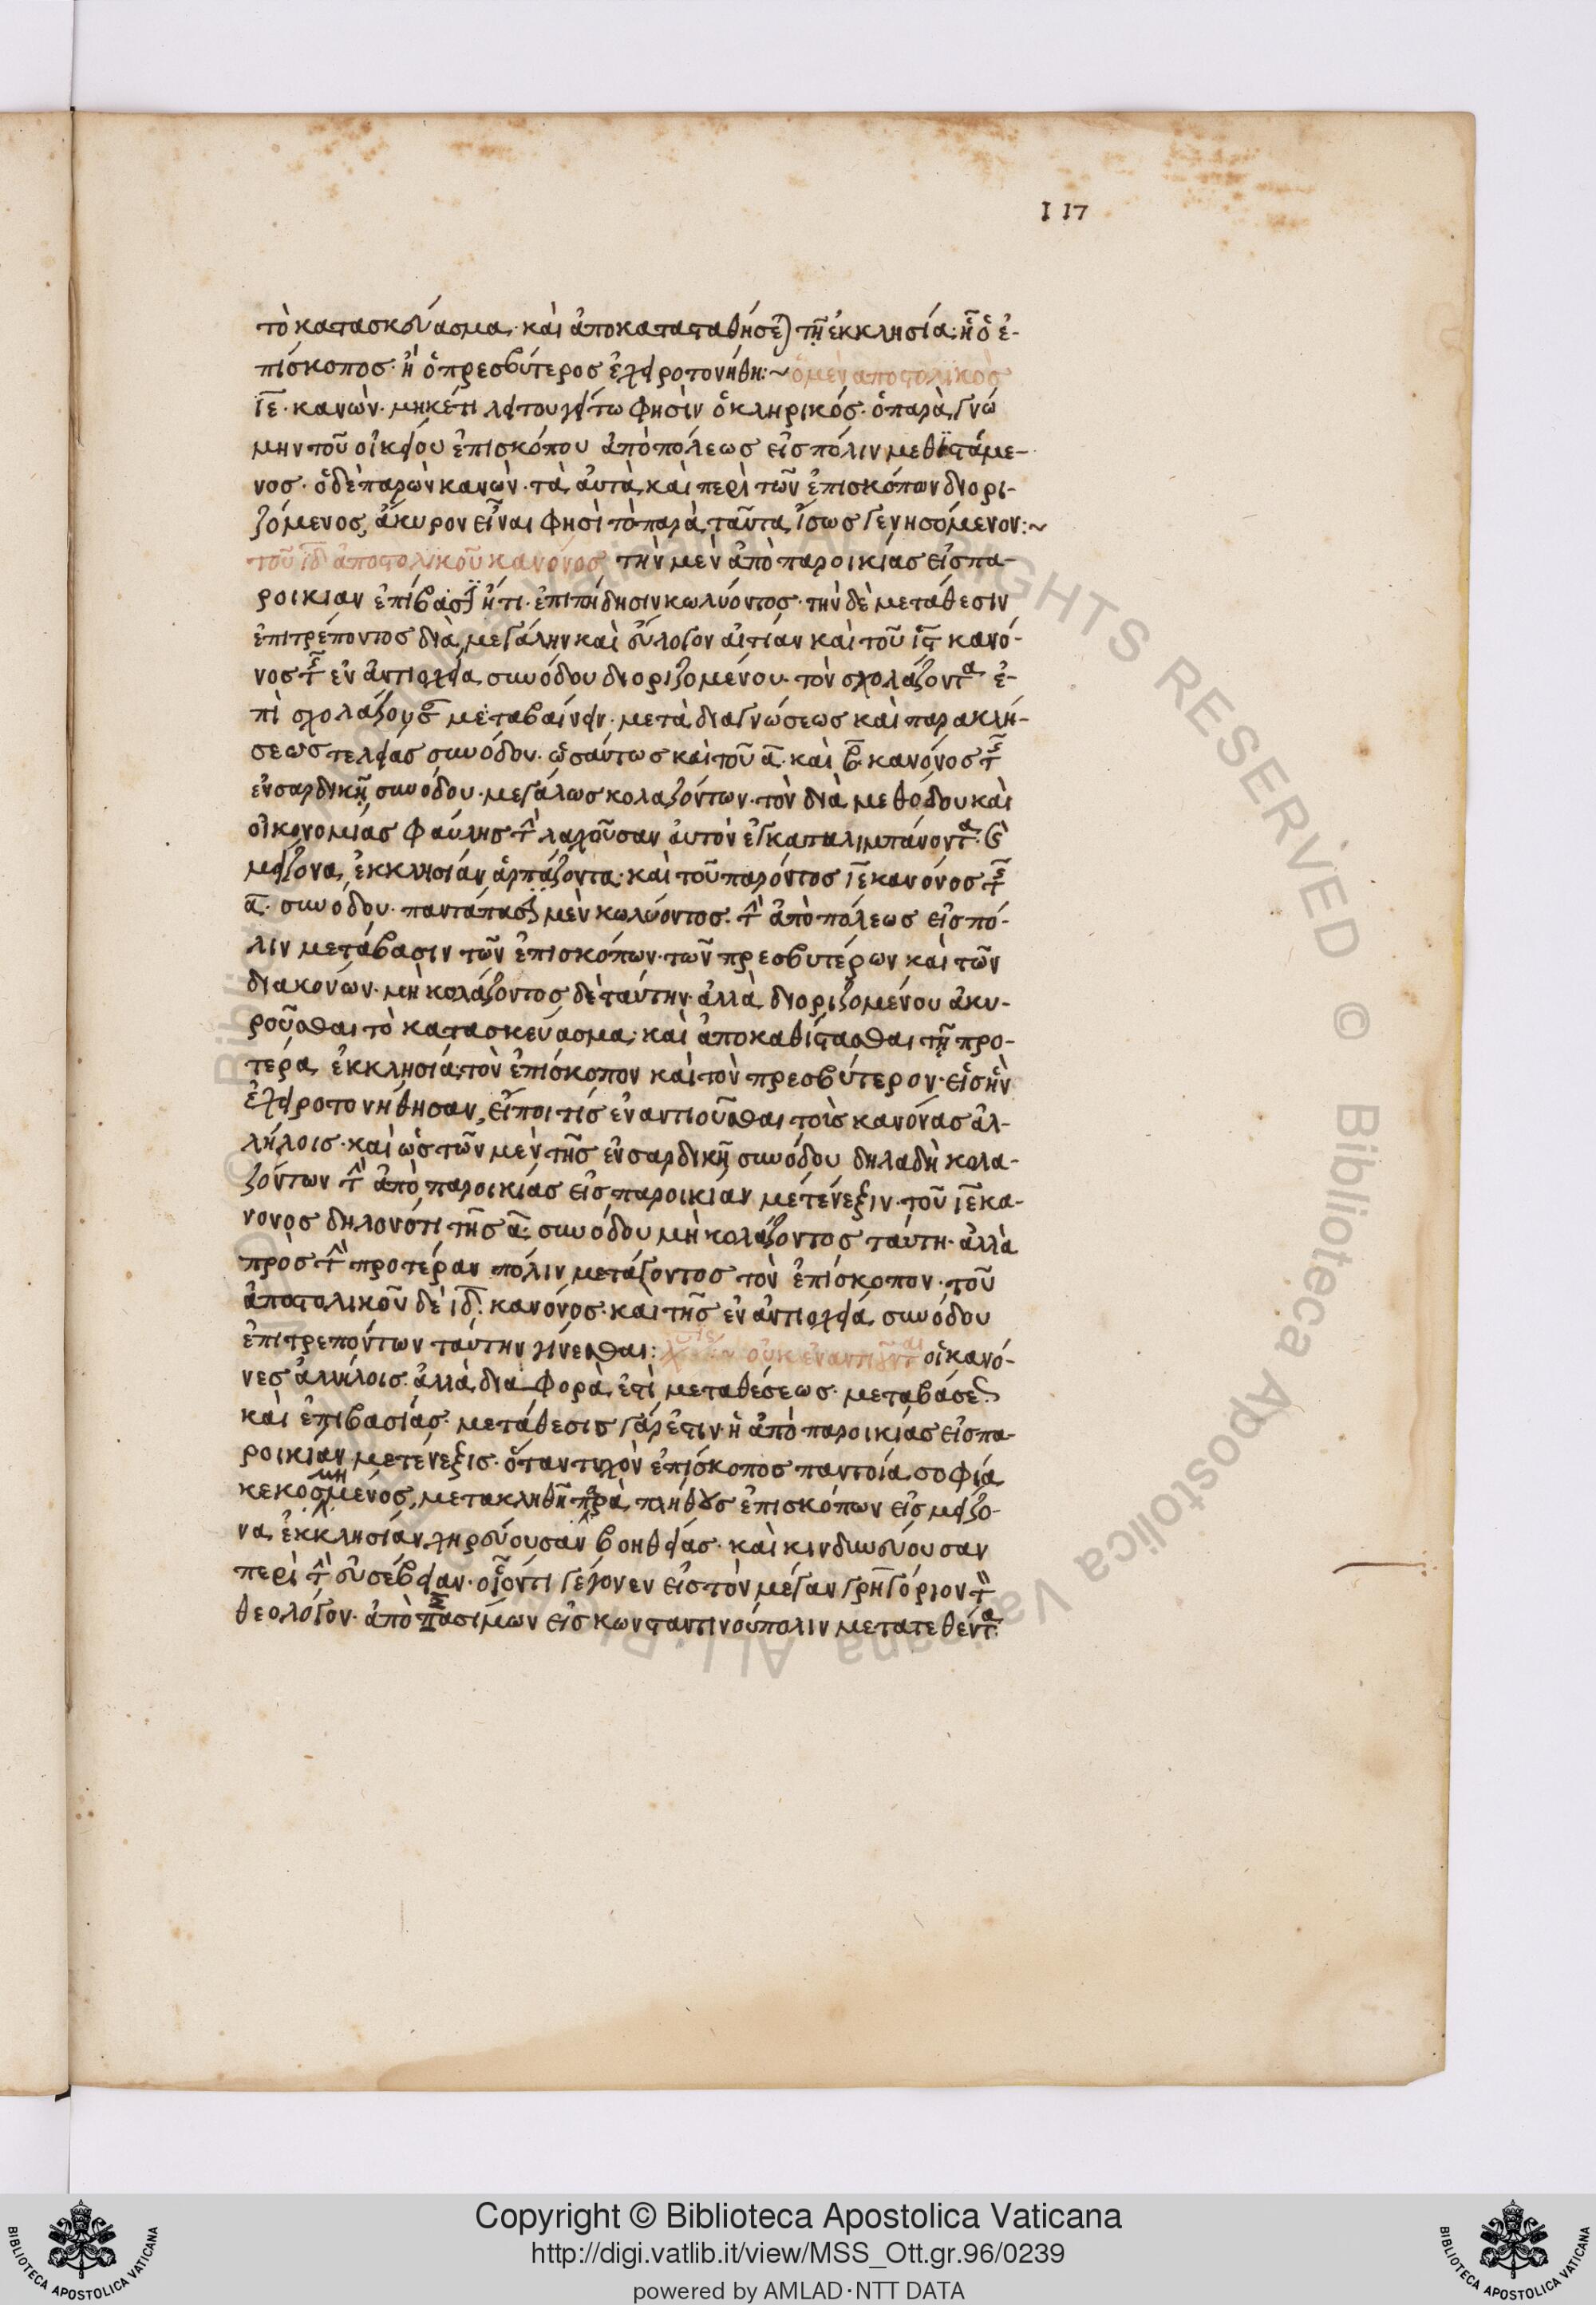 117
τὸ κατασκεύασμα· καὶ ἀποκατασταθήσεται τῇ ἐκκλησία· ἧ ὁ ἐ-
πίσκοπος· ἢ ὁ πρεσβύτερος ἐχειροτονήθη:~ ὁ μὲν ἀποστολικὸς
ιε̄· κανὼν· μηκέτι λειτουργείτω φησὶν ὁ κληρικός· ὁ παρὰ γνώ
μην τοῦ οἰκείου ἐπισκόπου ἀπὸ πόλεως εἰς πόλιν μεθϊστάμε-
νος· ὁ δὲ παρὼν κανὼν· τὰ αὐτὰ καὶ περὶ τῶν ἐπισκόπων διορι-
ζόμενος, ἄκυρον εἶναι φησὶ τὸ παρὰ ταῦτα ἴσως γενησόμενον:~
τοῦ ιδ̄ ἀποστολικοῦ κανόνος τὴν μὲν ἀπὸ παροικίας εἰς πα-
ροικίαν ἐπίβασιν ἤτι· ἐπιπήδησιν κωλύοντος· τὴν δὲ μετάθεσιν
ἐπιτρέποντος διὰ μεγάλην καὶ εὔλογον αἰτίαν καὶ τοῦ ις̄ κανό-
νος τῆς ἐν ἀντιοχεία συνόδου διοριζομένου· τὸν σχολάζοντα ἐ-
πὶ σχολάζουσαν μεταβαίνειν· μετὰ διαγνώσεως καὶ παρακλή-
σεως τελείας συνόδου· ὡσαύτως καὶ τοῦ ᾱ· καὶ β̄· κανόνος τῆς
ἐν σαρδικῇ συνόδου· μεγάλως κολαζόντων· τὸν διὰ μεθόδου καὶ
οἰκονομίας φαύλης τὴν λαχοῦσαν αὐτὸν ἐγκαταλιμπάνοντα· καὶ
μείζονα ἐκκλησίαν ἁρπάζοντα· καὶ τοῦ παρόντος ιε̄ κανόνος τῆς
ᾱ· συνόδου· παντάπασι μὲν κωλύοντος· τὴν ἀπὸ πόλεως εἰς πό-
λιν μετάβασιν τῶν ἐπισκόπων· τῶν πρεσβυτέρων καὶ τῶν
διακόνων· μὴ κολάζοντος δὲ ταύτην· ἀλλὰ διοριζομένου ἀκυ-
ροῦσθαι τὸ κατασκεύασμα· καὶ ἀποκαθίστασθαι τῇ προ-
τέρα ἐκκλησία· τὸν ἐπίσκοπον καὶ τὸν πρεσβύτερον· εἰς ἣν
ἐχειροτονήθησαν, εἴποι τίς ἐναντιοῦσθαι τοὶς κανόνας ἀλ-
λήλοις· καὶ ὡς τῶν μὲν τῆς ἐν σαρδικῇ συνόδου δηλαδὴ κολα-
ζόντων τὴν ἀπὸ παροικίας εἰς παροικίαν μετένεξιν· τοῦ ιε̄ κα-
νόνος δηλονότι τῆς ᾱ· συνόδου μὴ κολάζοντος ταύτη· ἀλλὰ
πρὸς τὴν προτέραν πόλιν μετάγοντος τὸν ἐπίσκοπον· τοῦ
ἀποστολικοῦ δὲ ιδ̄· κανόνος· καὶ τῆς ἐν ἀντιοχεία συνόδου
ἐπιτρεπόντων ταύτην γίνεσθαι: οὐκ ἐναντιοῦνται οἱ κανό-
νες ἀλλήλοις· ἀλλὰ διαφορὰ ἐστὶ μεταθέσεως· μεταβάσεως
καὶ ἐπιβασίας· μετάθεσις γάρ ἐστιν· ἡ ἀπὸ παροικίας εἰς πα-
ροικίαν μετένεξις· ὅταν τυχὸν ἐπίσκοπος παντοία σοφία
κεκοσμημένος, μετακληθῆ παρὰ πλήθους ἐπισκόπων εἰς μείζο-
να ἐκκλησίαν χηρεύουσαν βοηθείας· καὶ κινδυνεύουσαν
περὶ τὴν εὐσέβειαν· οἷόν τι γέγονεν εἰς τὸν μέγαν γρηγόριον τὸν
θεολόγον· ἀπὸ σασίμων εἰς κωνσταντινούπολιν μετατεθέντα·
Copyright © Biblioteca Apostolica Vaticana
http://digi.vatlib.it/view/MSS_Ott.gr.96/0239
powered by AMLAD·NTT DATA